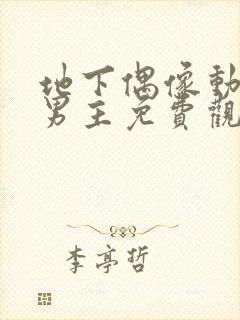 地下偶像動
男主免費觀
李亭哲